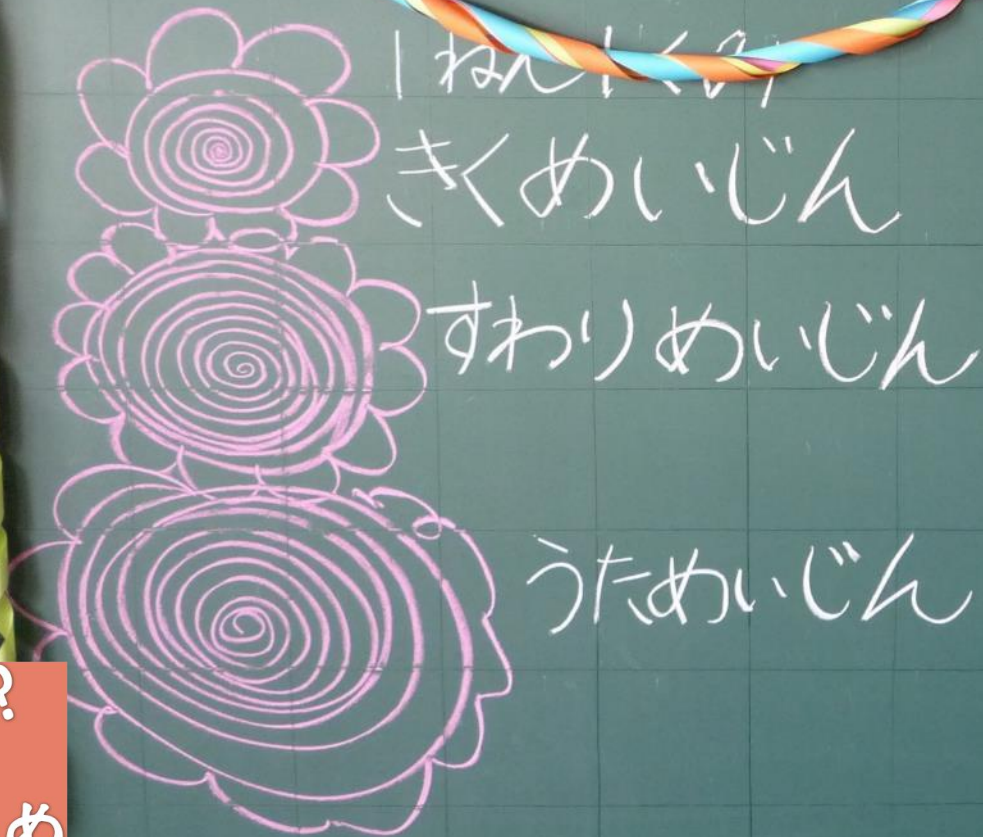 1ねん1くみ
きくめいじん
すわりめいじん
うためいじん
?
め